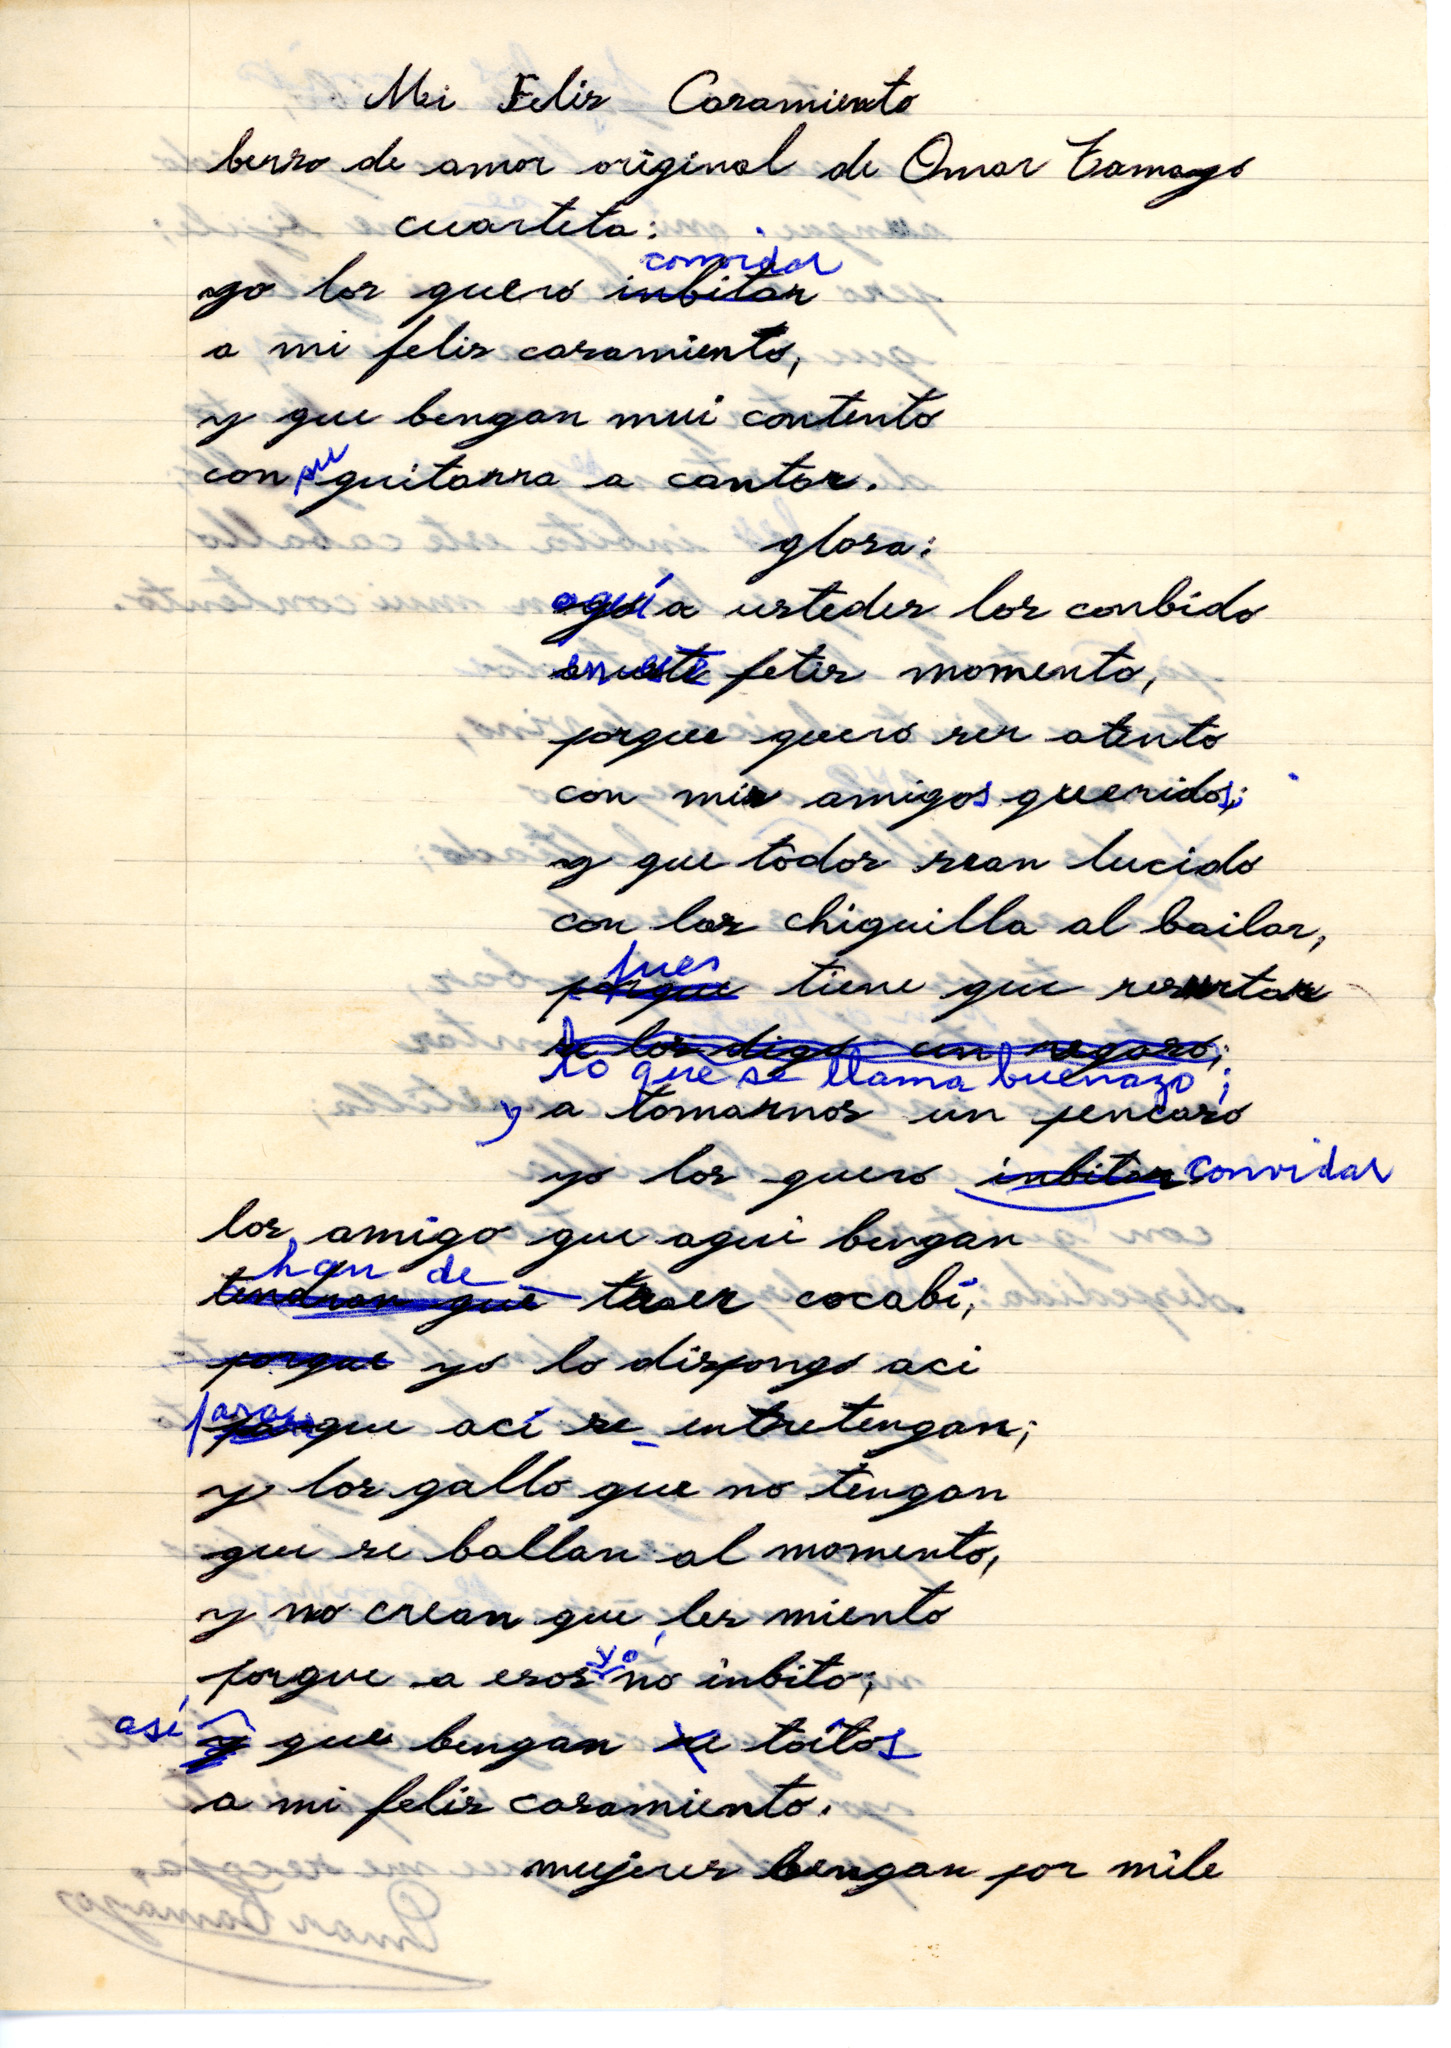 Mi Felis Casamiento
berso de amor original de Omar Tamayo
cuarteta:
convidar
yo los quero inbitar
a mi felis casamiento,
y que bengan mui contento
con su guitarra a cantar.
glosa:
aquí a ustedes los conbido
en este felis momento,
porque quero ser atento
con mis amigos queridos;
y que todos sean lucido
con las chiquilla al bailar,
pues
porque tiene que resurtar
si los digo un regaso;
lo que se llama buenazo;
y a tomarnos un pencaso
yo los quero inbitar convidar
los amigo que aqui bengan
han de
tendran que traer cocabí,
porque yo lo dispongo aci
para
porque ací se entretengan;
y los gallo que no tengan
que se ballan al momento,
y no crean que les miento
porque a esos yo no inbito;
así y que bengan se toitos
a mi felis casamiento.
mujeres bengan por mile